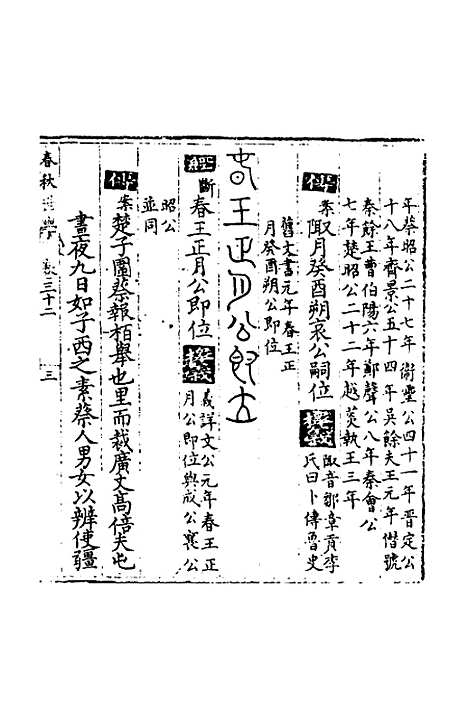 年蔡昭公二十七年衛靈公四十一年晉定公
十八年齊景公五十四年吳餘夫王元年僭號
秦餘王曹伯陽六年鄭聲公八年秦會公
七年楚昭公二十二年越菼執王三年
傳
案
陬月癸酉朔哀公嗣位
陬音鄒章貢李
氏曰卜傳魯史
舊文書元年春王正
月癸酉朔公即位
春王正月公即位
經
斷
春王正月公即位
義詳文公元年春王正
月公即位與成公襄公
昭公
並同
傳
案
楚子圍蔡報柏舉也里而栽廣丈高倍夫屯
晝夜九日如子西之素蔡人男女以辨使疆
春秋
卷三十二
三